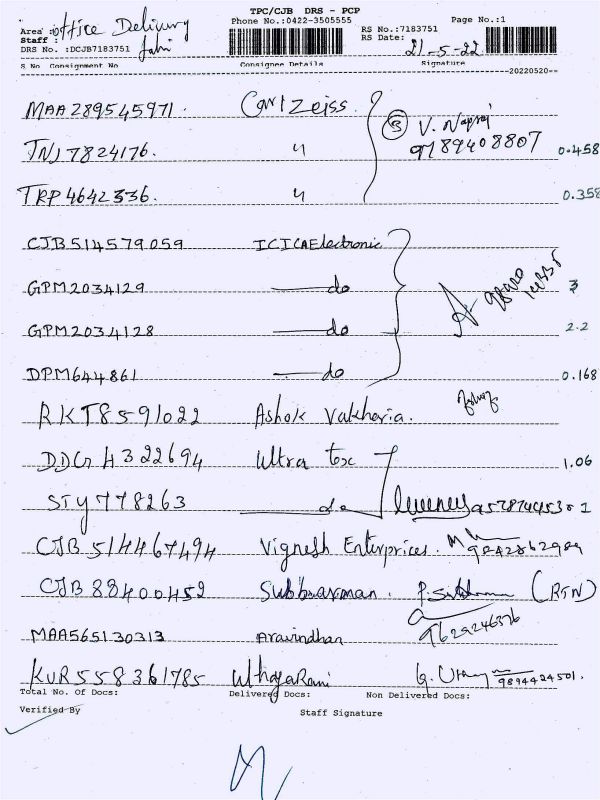 TPC/CJB DRS - PCP
Phone No.:0422-3505555 Page No.:1
Area : office Delivery RS No.:7183751
Staff : RS Date: 21-5-22
DRS No. :DCJB7183751
S No Consignment No Consignee Details Signature
--20220520--
MAA289545971. Carl Zeiss.
5 V. 9789408807
TNJ7824176. " 0.458
TRP4642336. " 0.358
CJB514579059 ICICAElectronic
GPM2034129 do 3
GPM2034128 do 2.2
DPM644861 do 0.168
RKT8591022 Ashok Vakharia.
DDG4322694 Ultra tex 1.06
STY778263 do 1
CJB514467494 Vignesh Enterprices.
CJB88400452 Subbraman. (RTN)
9629246376
MAA565130313 Aravindhan
KUR558361785 UthayaRani 9894424501.
Total No. Of Docs: Delivered Docs: Non Delivered Docs:
Verified By Staff Signature